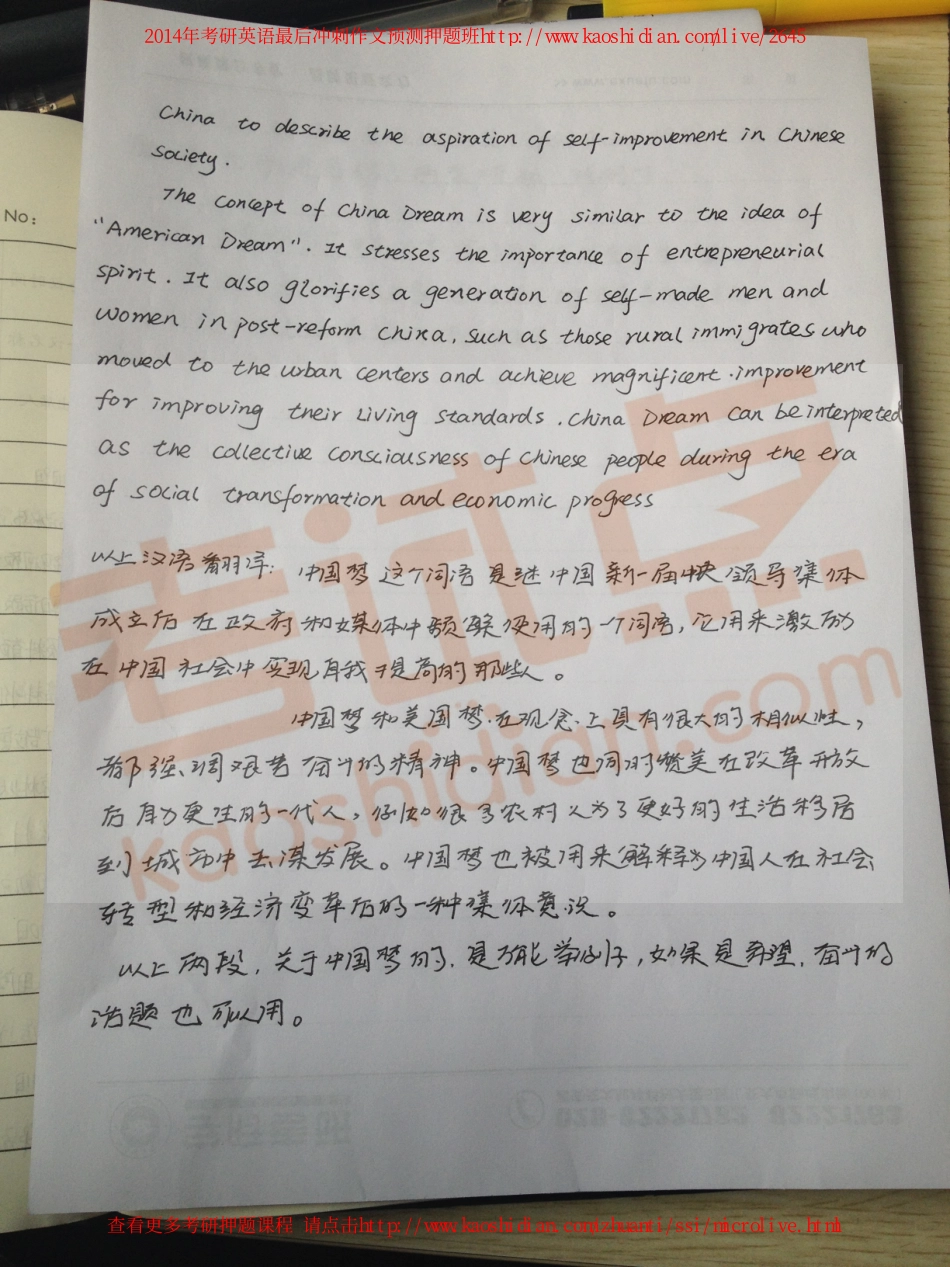 2014年考研英语最后冲刺作文预测押题班http://www.kaoshidian.com/live/2645
China to describe the aspiration of self-improvement in Chinese
Society.
No:
The concept of China Dream is very similar to the idea of
"American Dream". It stresses the importance of entrepreneurial
spirit. It also glorifies a generation of self-made men and
women in post-reform China, such as those rural immigrates who
moved to the urban centers and achieve magnificent improvement
for improving their living standards. China Dream can be interpreted
as the collective consciousness of Chinese people during the era
of social transformation and economic progress
以上汉语翻译: 中国梦这个词语是继中国新一届中央领导集体
成立后在政府和媒体中频繁使用的一个词语,它用来激励
在中国社会中实现自我提高的那些人。
中国梦和美国梦在观念上具有很大的相似性,
都强调艰苦奋斗的精神。中国梦也同时赞美在改革开放
后自力更生的一代人,例如很多农村人为了更好的生活移居
到城市中去谋发展。中国梦也被用来解释为中国人在社会
转型和经济变革后的一种集体意识。
以上两段,关于中国梦的,是万能举例子,如果是希望,奋斗的
话题也可以用。
考试点
kaoshidian.com
查看更多考研押题课程 请点击http://www.kaoshidian.com/zhuanti/ssi/microlive.html